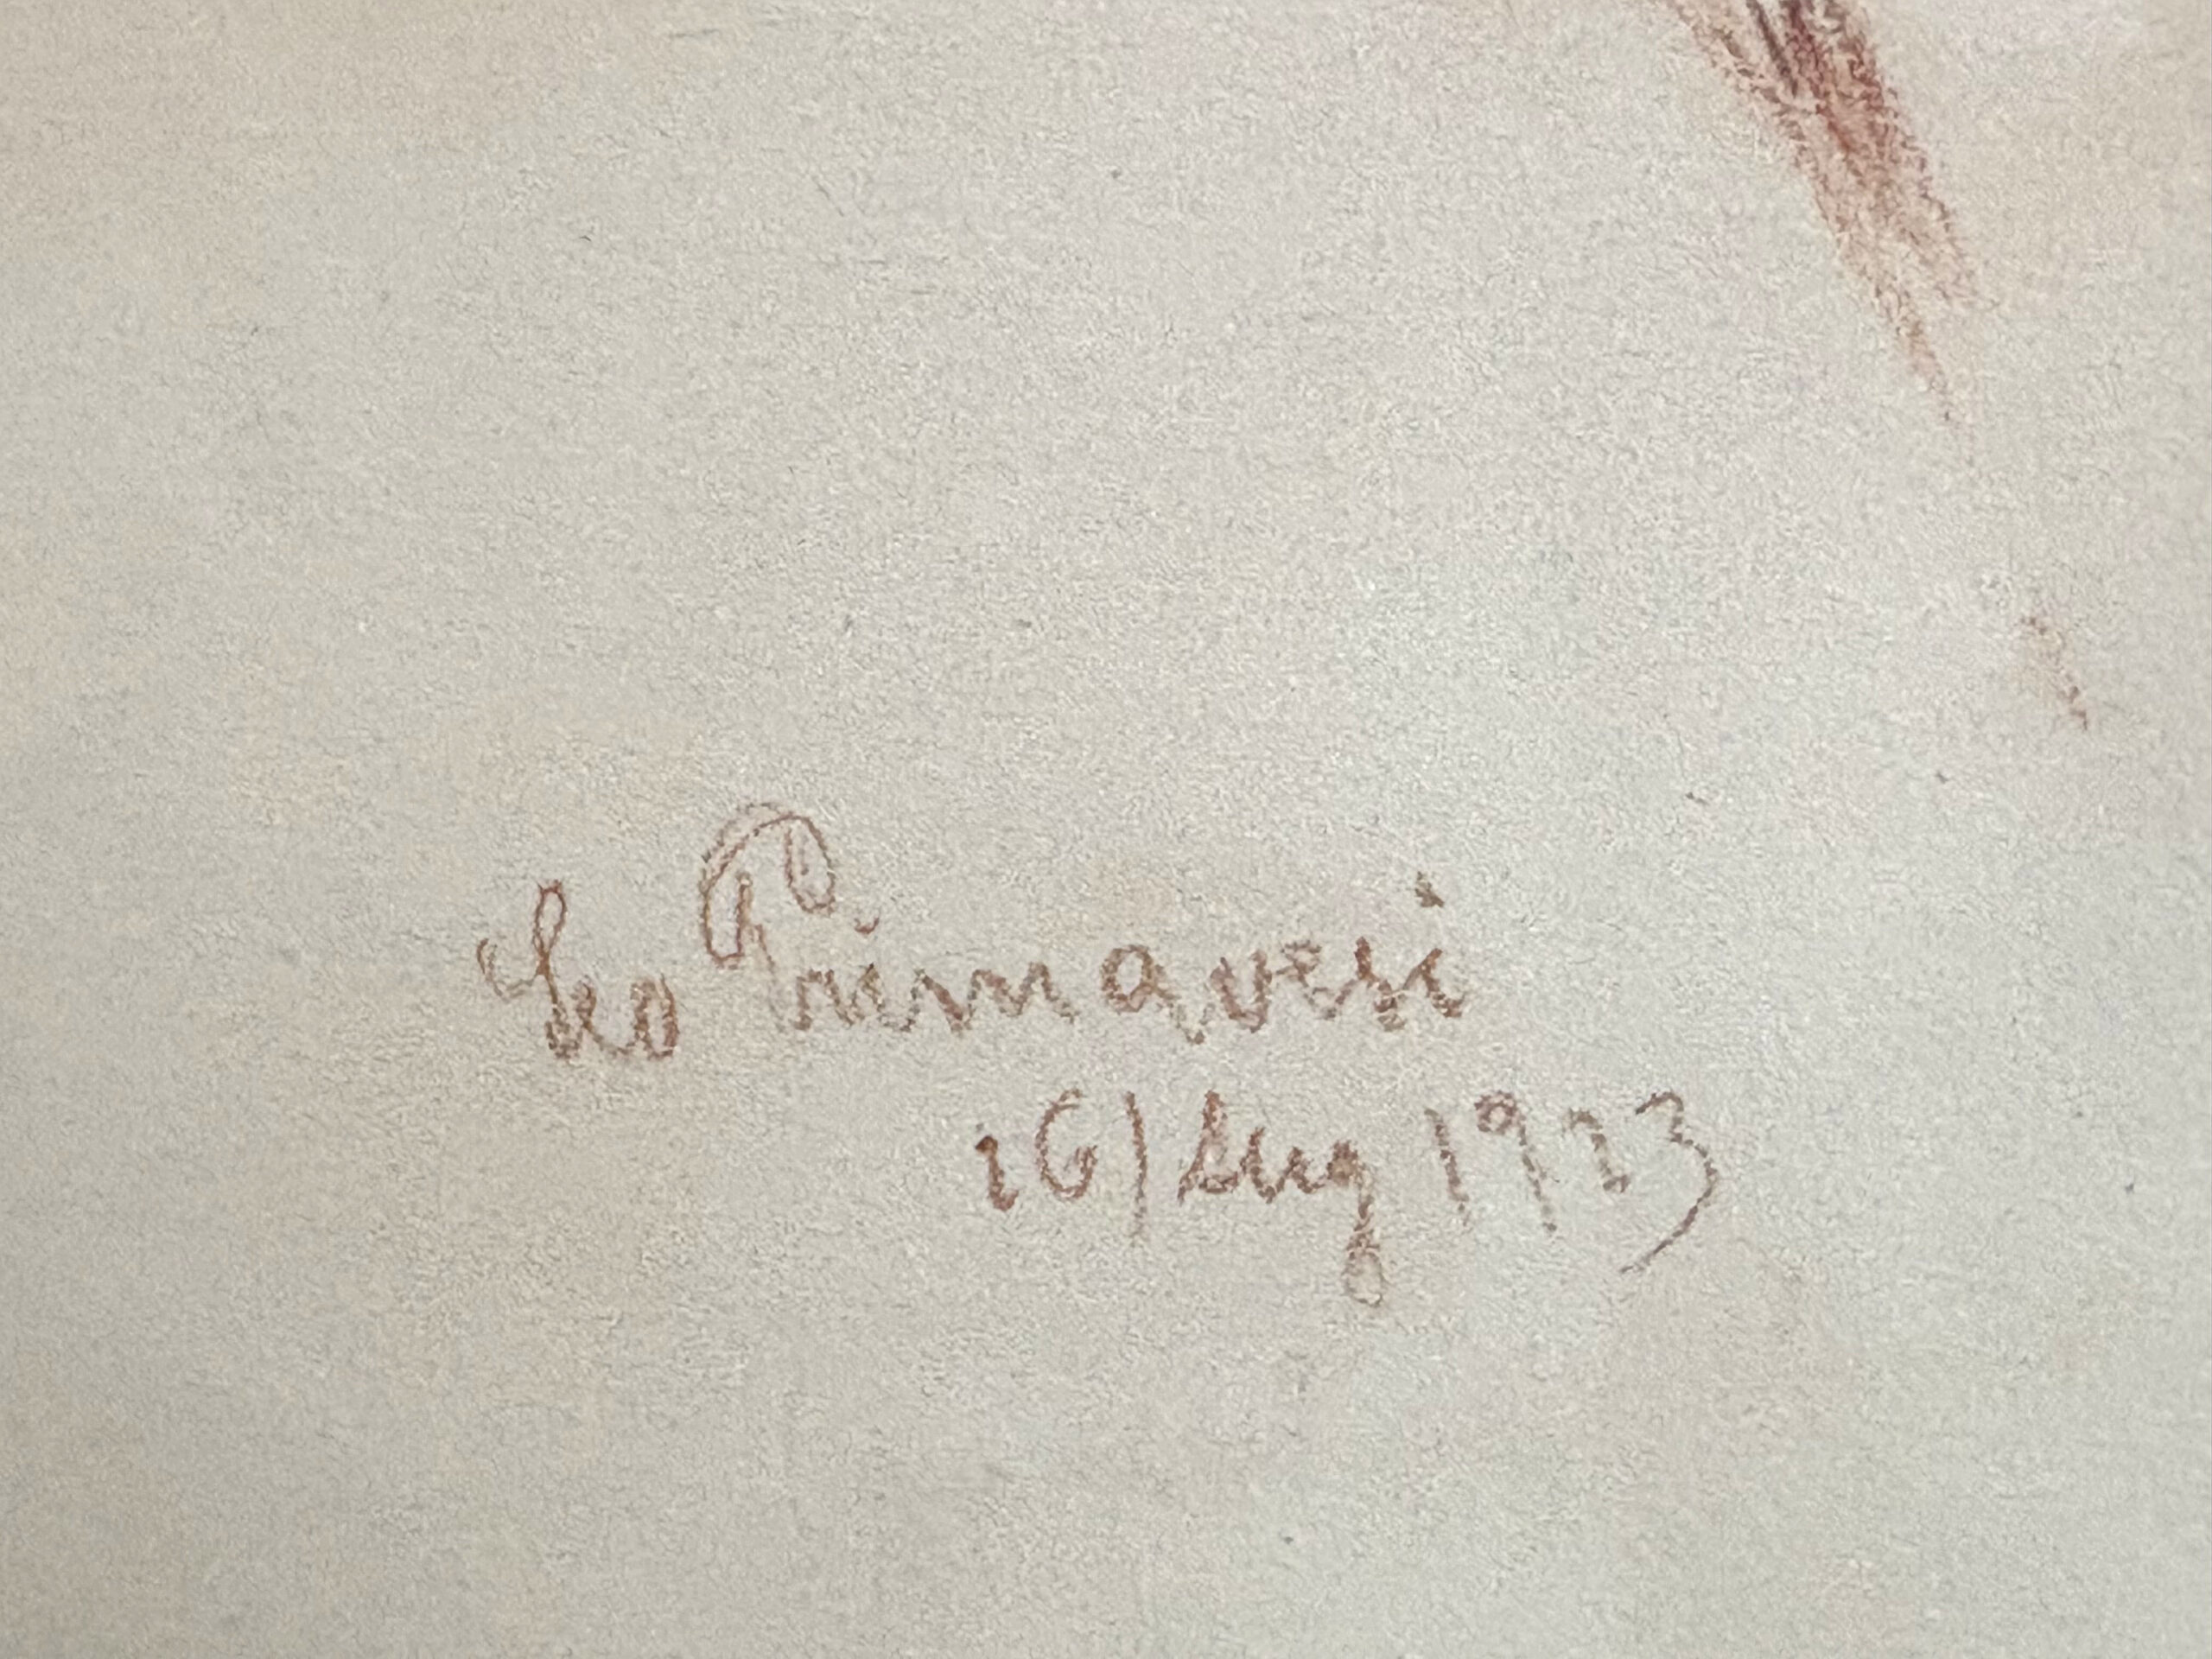 Leo Primavesi
16/Aug 1913